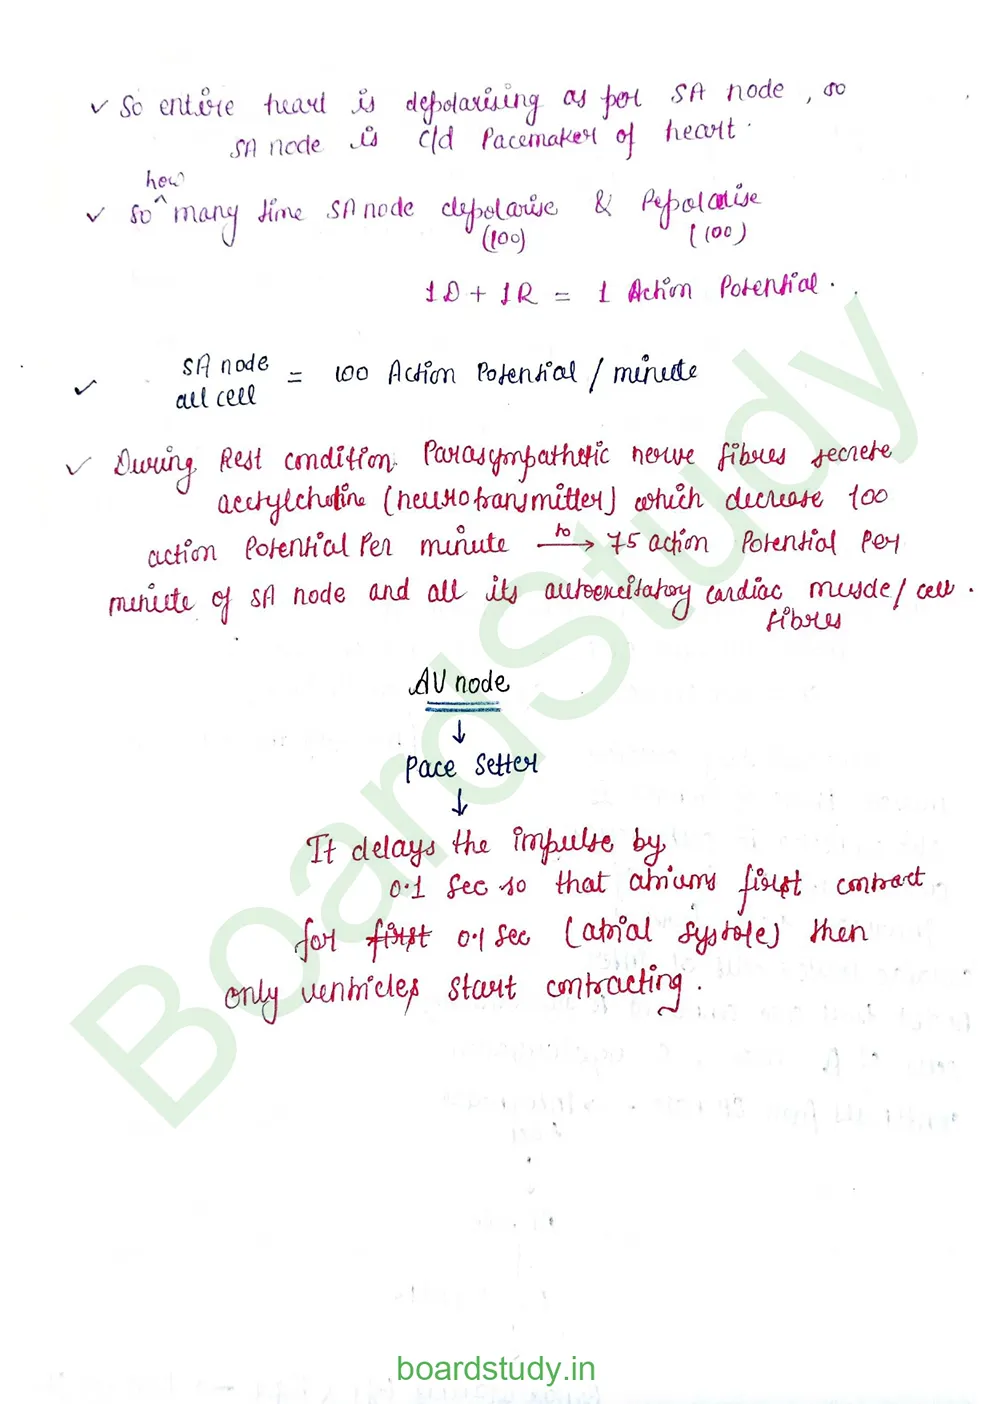 ✓ So entire heart is depolarising as per SA node, so
SA node is c/d Pacemaker of heart.
how
✓ So ^ many time SA node depolarise & Repolarise
(100) (100)
1D + 1R = 1 Action Potential.
✓ SA node
all cell = 100 Action Potential / minute
✓ During Rest condition Parasympathetic nerve fibres secrete
acetylcholine (neurotransmitter) which decrease 100
action Potential Per minute to → 75 action Potential Per
minute of SA node and all its autoexcitatory cardiac muscle/cell.
fibres
AV node
↓
Pace Setter
↓
It delays the impulse by
0.1 sec so that atriums first contract
for first 0.1 sec (atrial systole) then
only ventricles start contracting.
BoardStudy
boardstudy.in